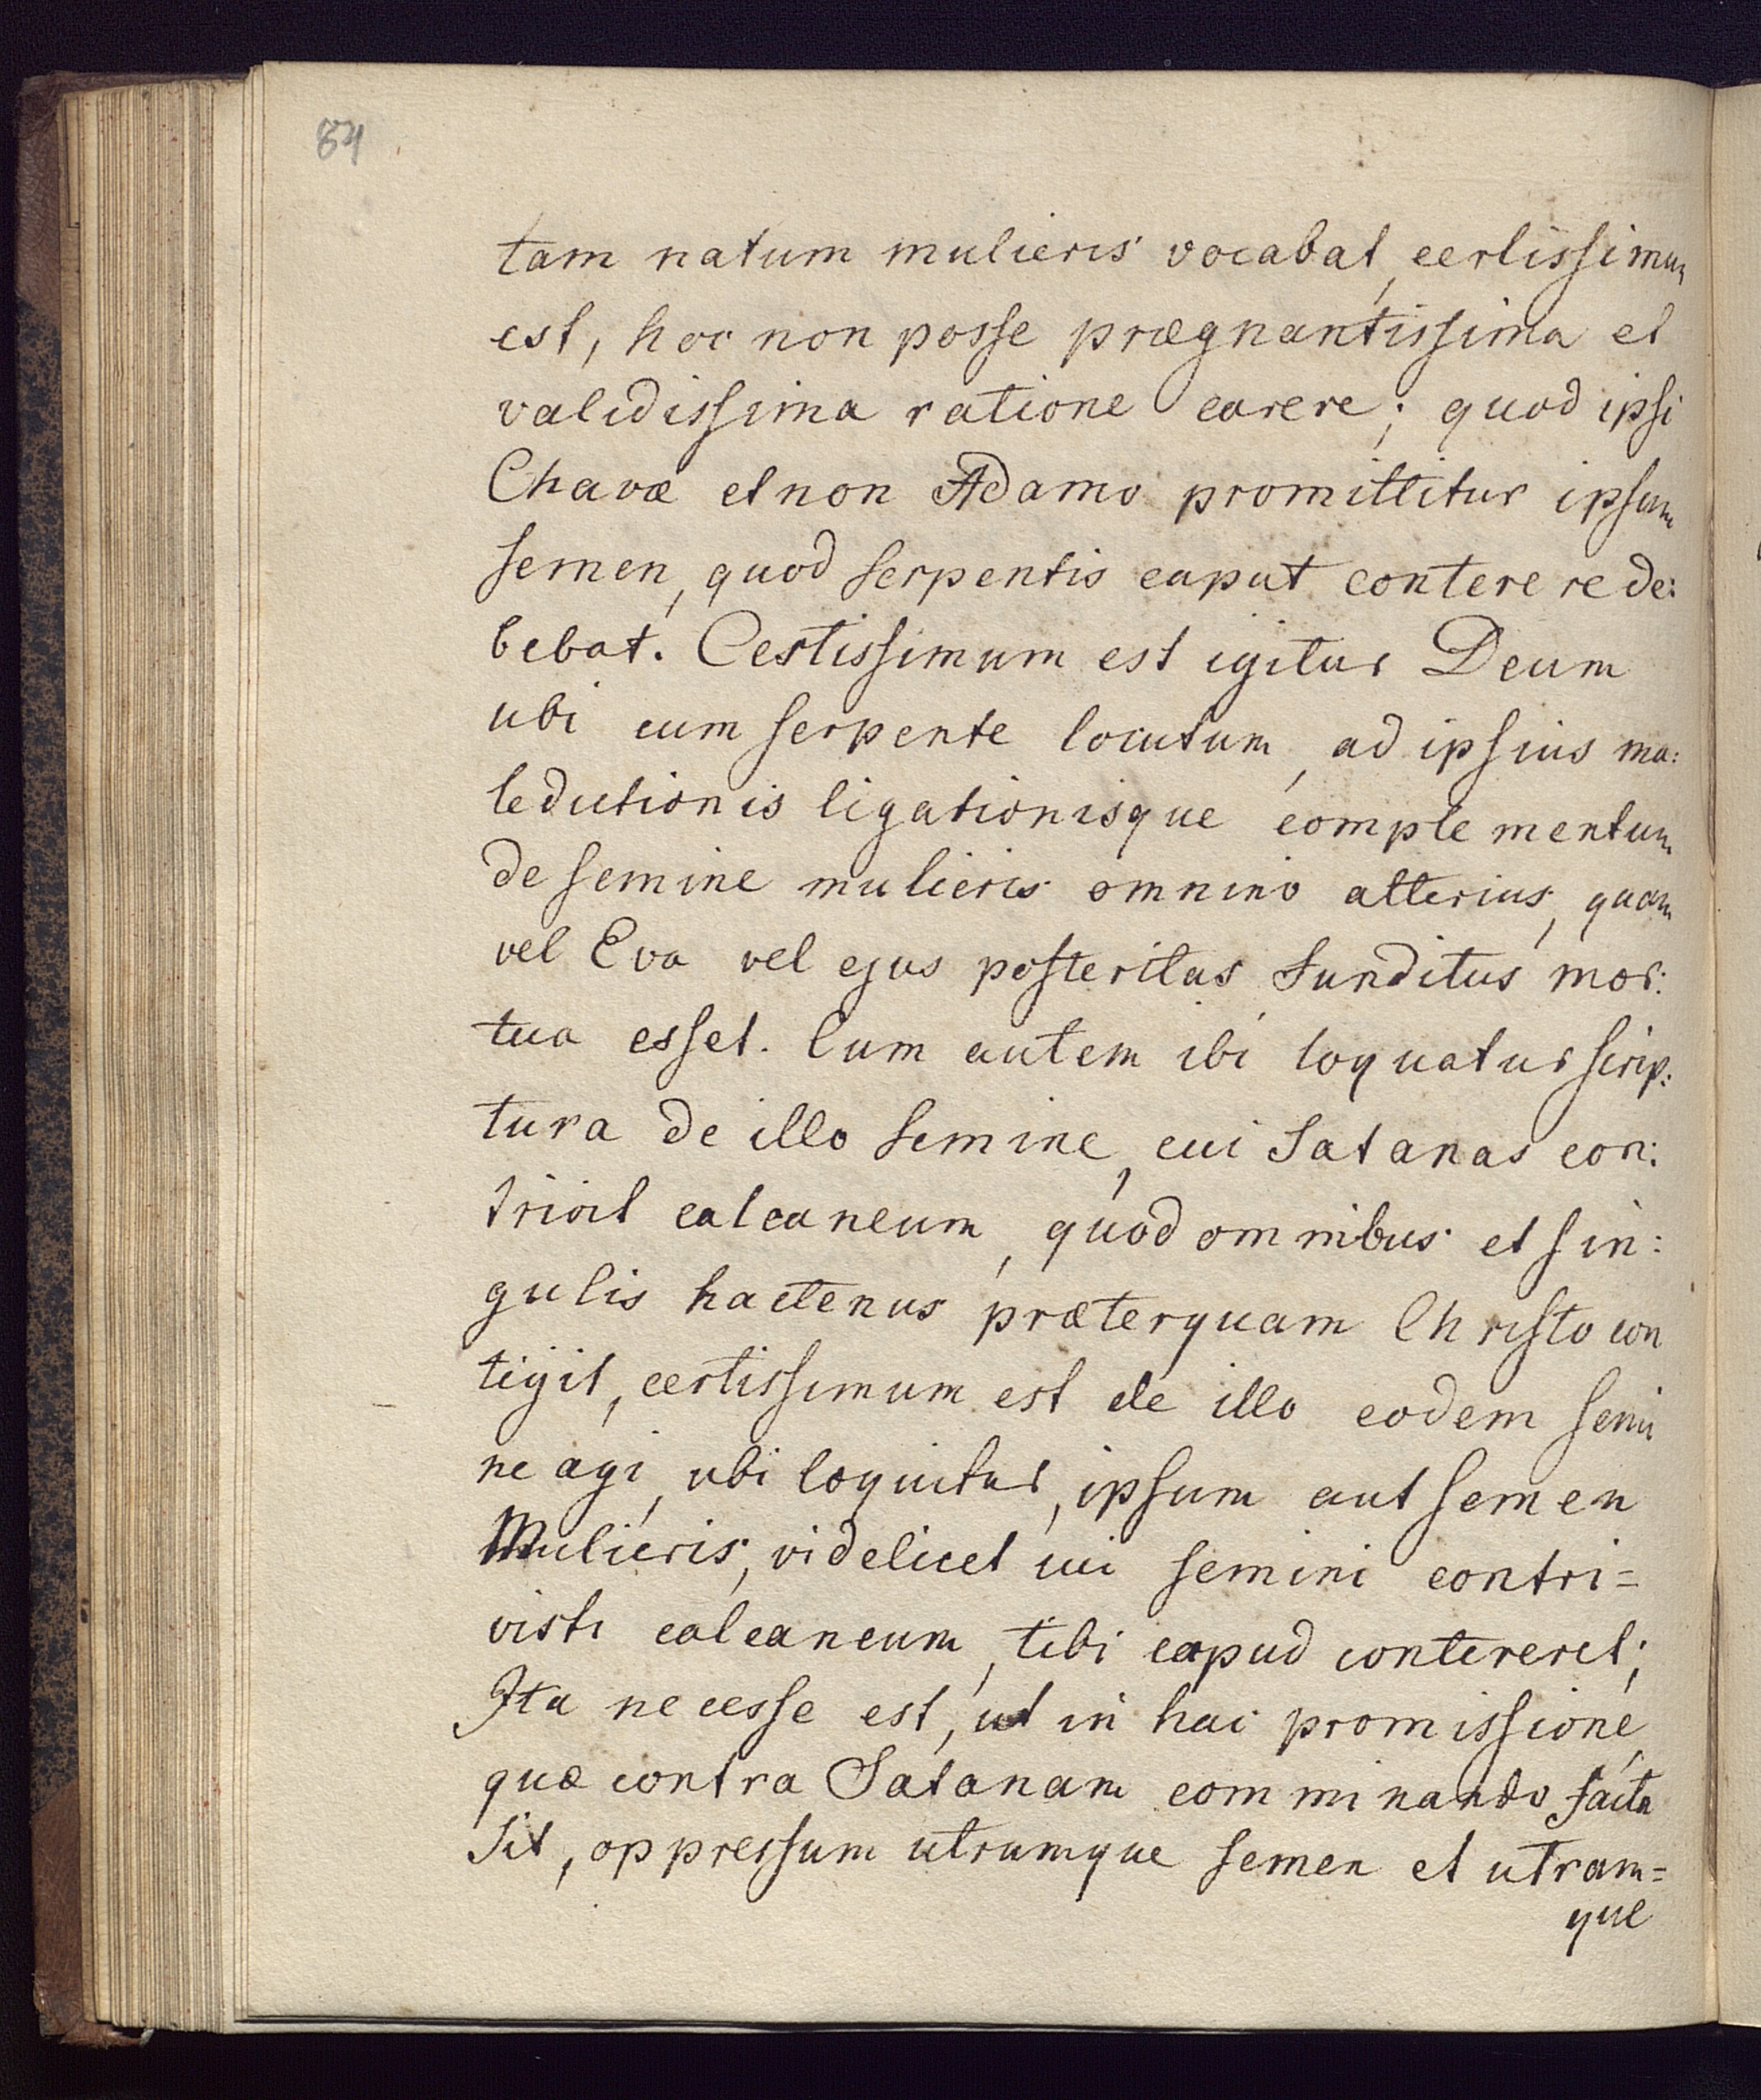 84
tam natum mulieris vocabat, certissimum
est, hoc non posse prægnantissima et
validissima ratione carere; quod ipsi
Chavæ et non Adamo promittitur ipsum
semen, quod serpentis caput conterere de:
bebat. Certissimum est igitur Deum
ubi cum serpente locutum, ad ipsius ma:
ledictionis ligationisque complementum
de semine mulieris omnino alterius, quam
vel Eva vel ejus posteritas funditus mor:
tua esset. Cum autem ibi loquatur scrip:
tura de illo semine, cui Satanas con:
trivit calcaneum, quod omnibus et sin:
gulis hactenus præterquam Christo con
tigit, certissimum est de illo eodem semi
ne agi, ubi loquitur, ipsum aut semen
Mulieris, videlicet cui semini contri=
visti calcaneum, tibi capud contereret;
Ita necesse est, ut in hac promissione,
quæ contra Satanam comminando facta
sit, oppressum utrumque semen et utram=
que